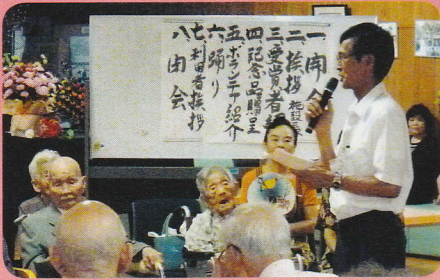 一、開会
二、挨拶 施設長
三、受賞者紹
四、記念品贈呈
五、ボランテア紹介
六、踊り
七、利用者挨拶
八、閉会